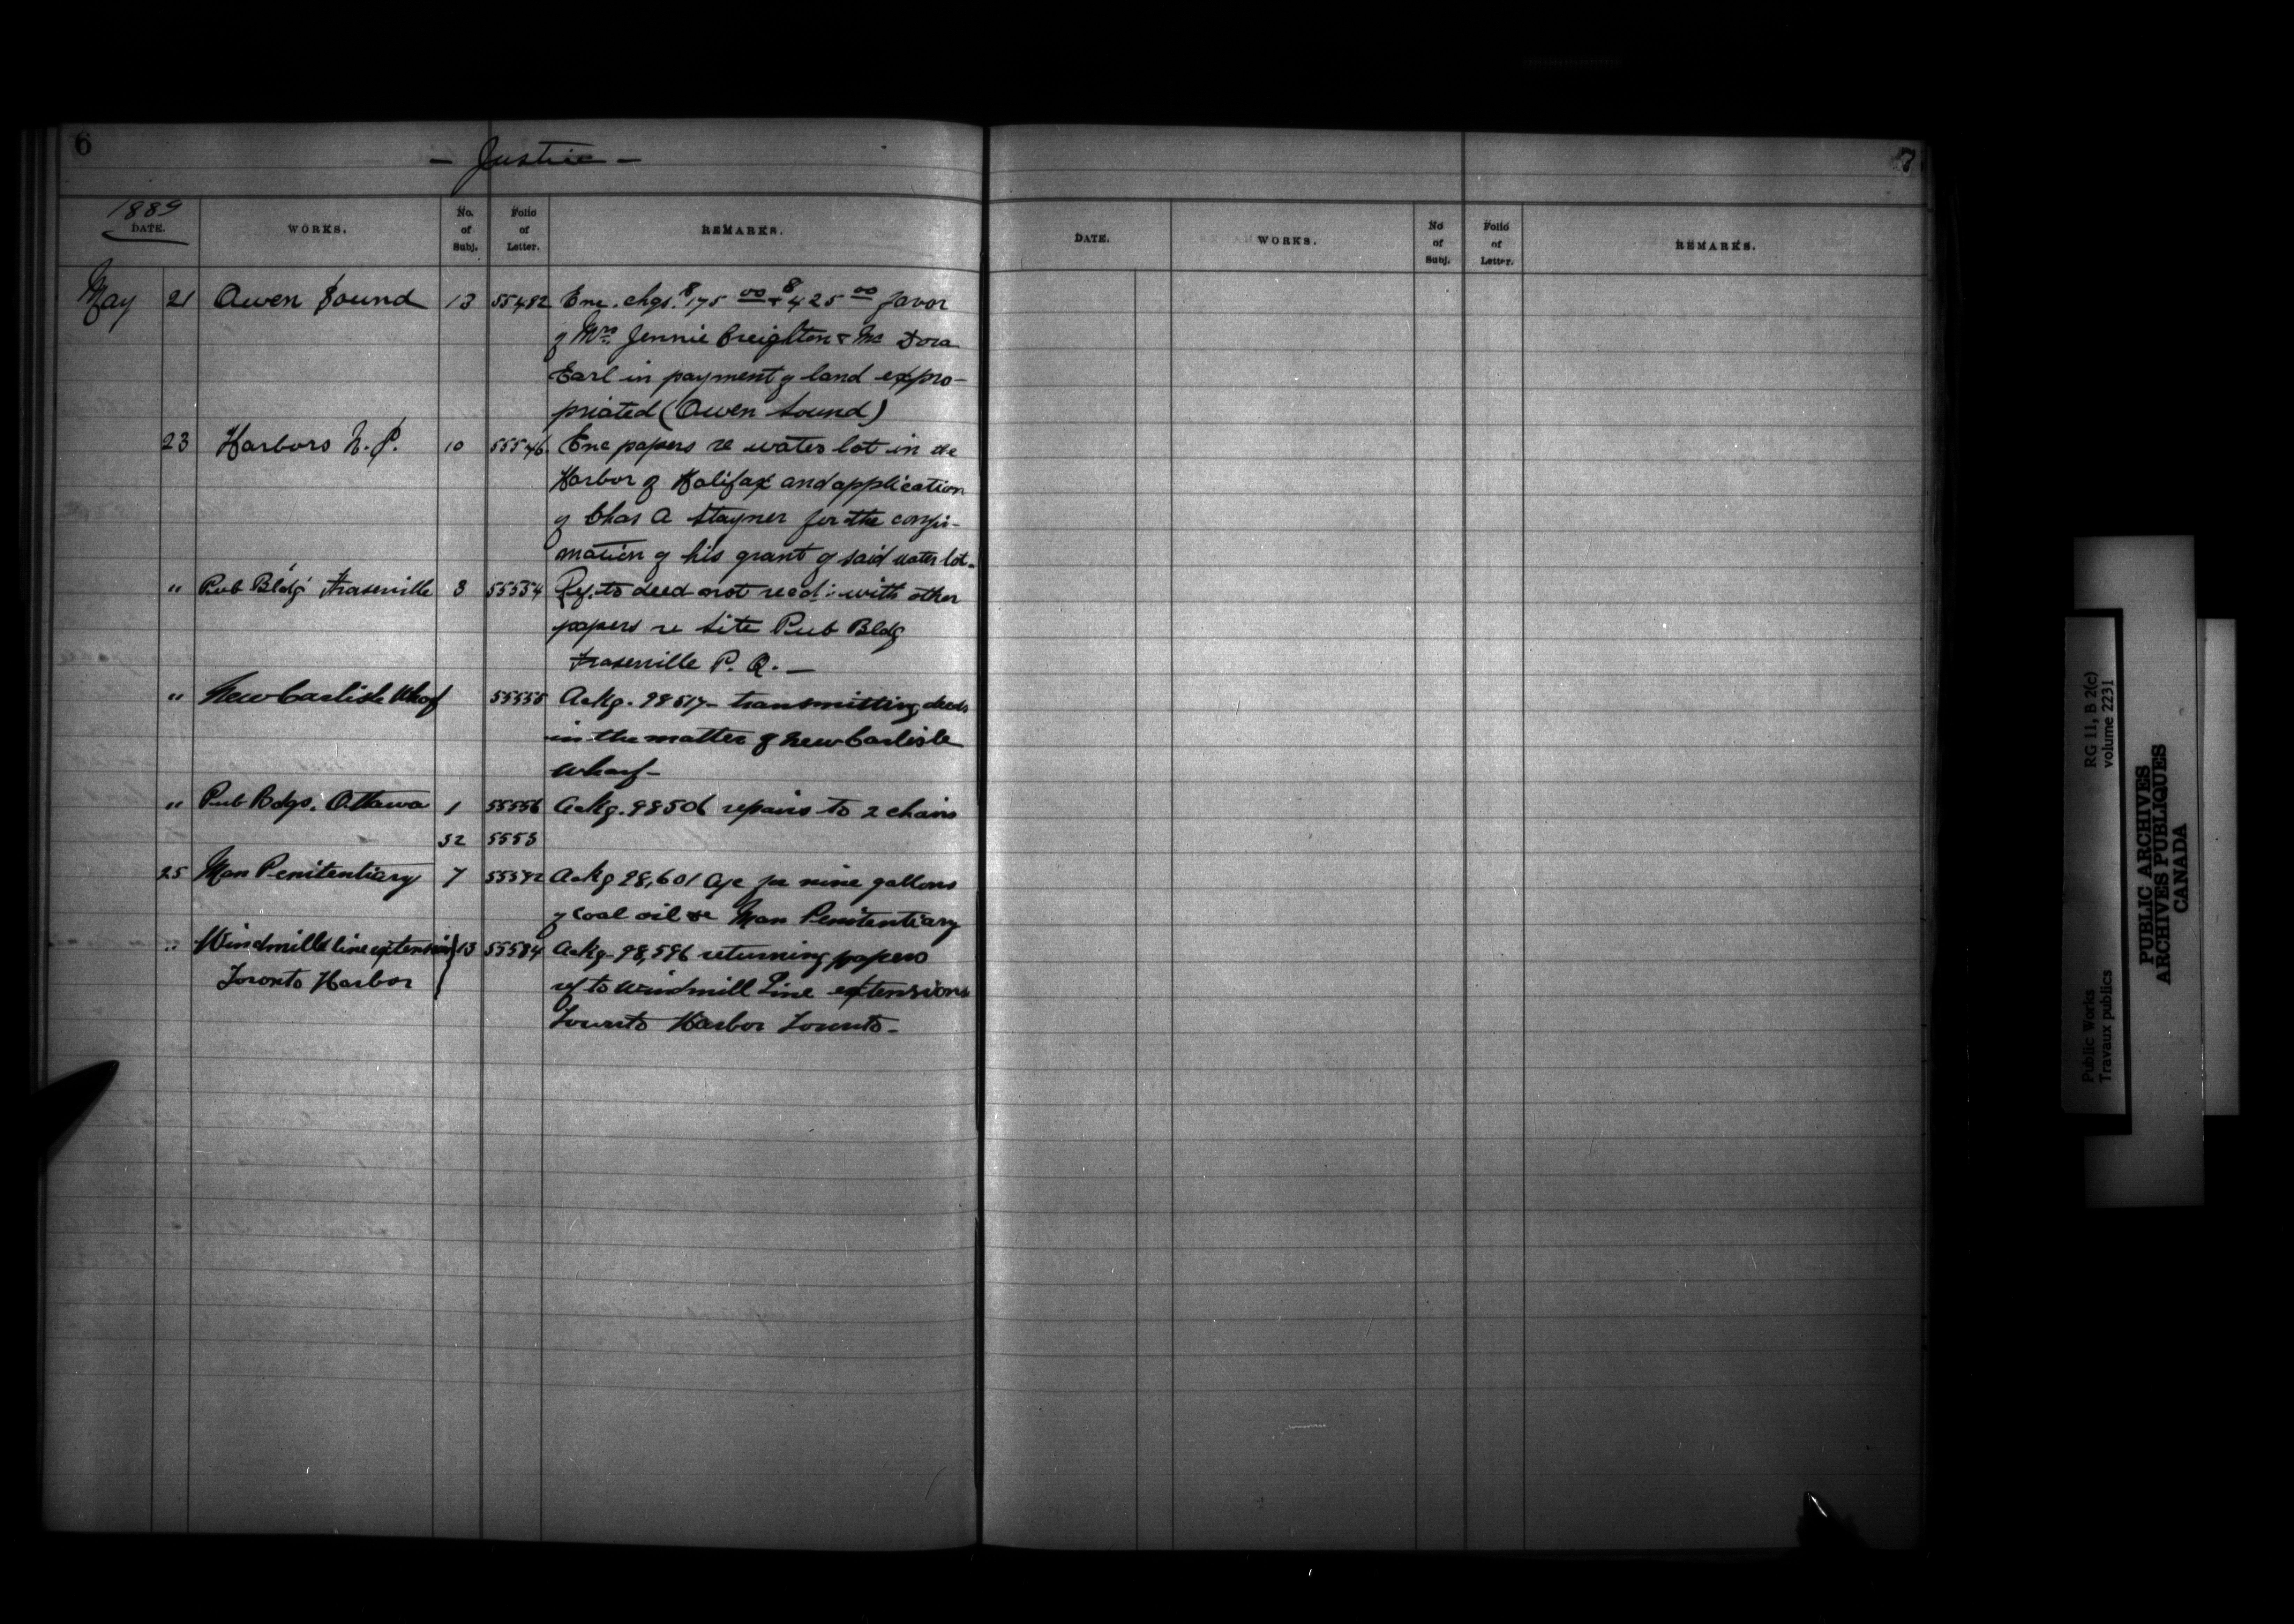 6
- Justice -
1889
DATE. WORKS. No. of Subj. Folio of Letter. REMARKS.
May 21 Owen Sound 13 55482 Enc. chqs. $175 00 + $425 00 favor
of Mrs. Jennie Creighton & Mrs Dora
Earl in payment of land expro-
priated (Owen Sound)
23 Harbors N.S. 10 55546 Enc papers re water lot in the
Harbor of Halifax and application
of Chas A Stayner for the confir-
mation of his grant of said water lot.
" Pub Bldg Fraserville 3 55554 Ref. to deed not recd: with other
papers re Site Pub Bldg
Fraserville P. Q. —
" New Carlisle Whaf 55555 Ackg. 98517 - transmitting deeds
in the matter of New Carlisle
wharf -
" Pub Bdgs. Ottawa 1 55556 Ackg. 98506 repairs to 2 chairs
52 5553
25 Man Penitentiary 7 Ackg 98,601 a/c for nine gallons
of coal oil re Man Penitentiary
" Windmill line extension 13 55584 Ackg 98,596 returning papers
Toronto Harbor
ref to Windmill Line extensions
Toronto Harbor Toronto -
7
DATE. WORKS. No of Subj. Folio of Letter. REMARKS.
Public Works RG 11, B 2(c)
Travaux publics volume 2231
PUBLIC ARCHIVES
ARCHIVES PUBLIQUES
CANADA